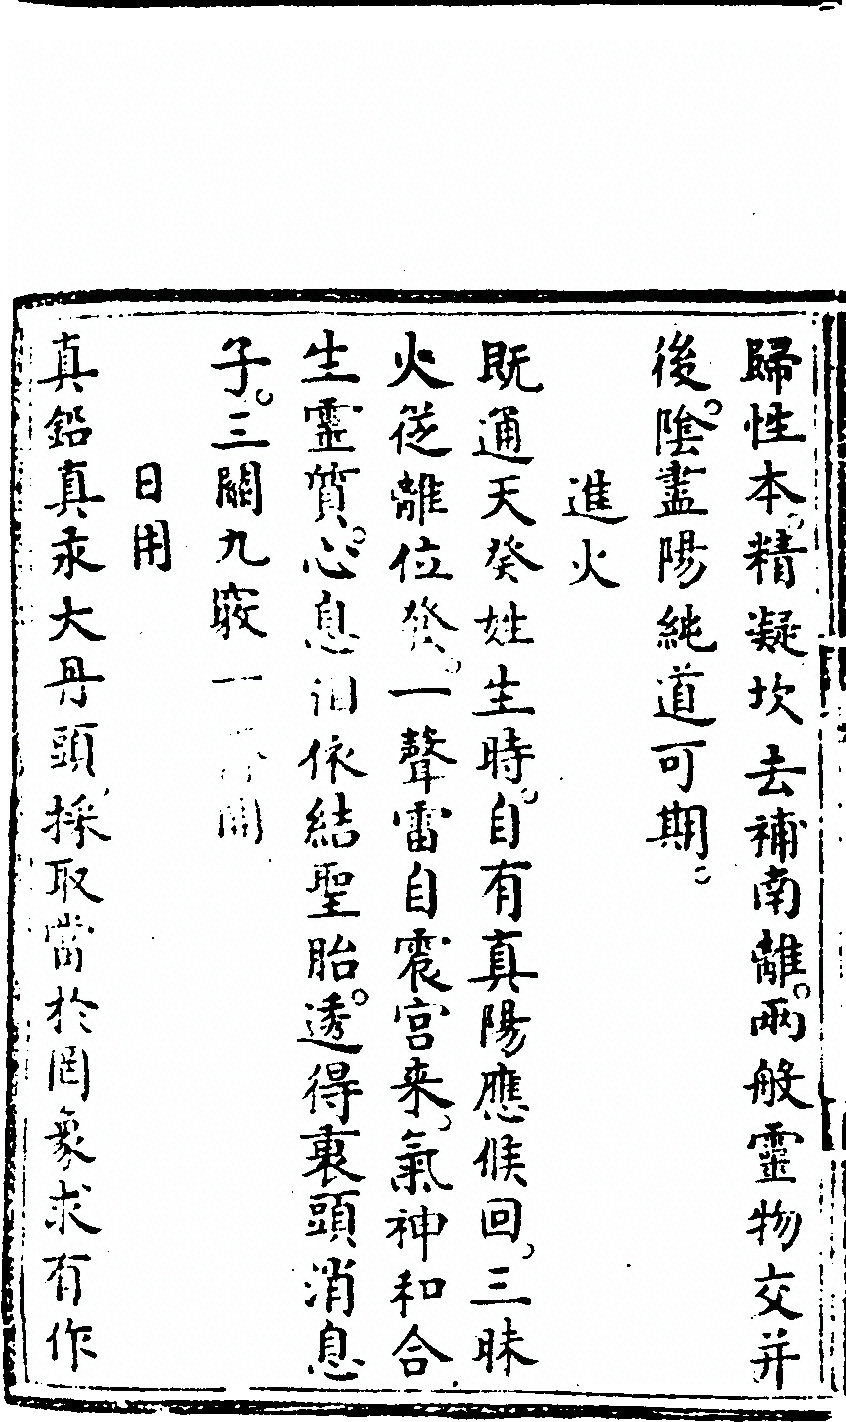 歸性本。精凝坎去補南離。兩般靈物交并
後。陰盡陽純道可期。
進火
既通天癸姓生時。自有真陽應候回。三昧
火從離位發。一聲雷自震宮来。氣神和合
生靈質。心息相依結聖胎。透得裏頭消息
子。三關九竅一齊開
日用
真鉛真汞大丹頭。採取當於罔象求有作